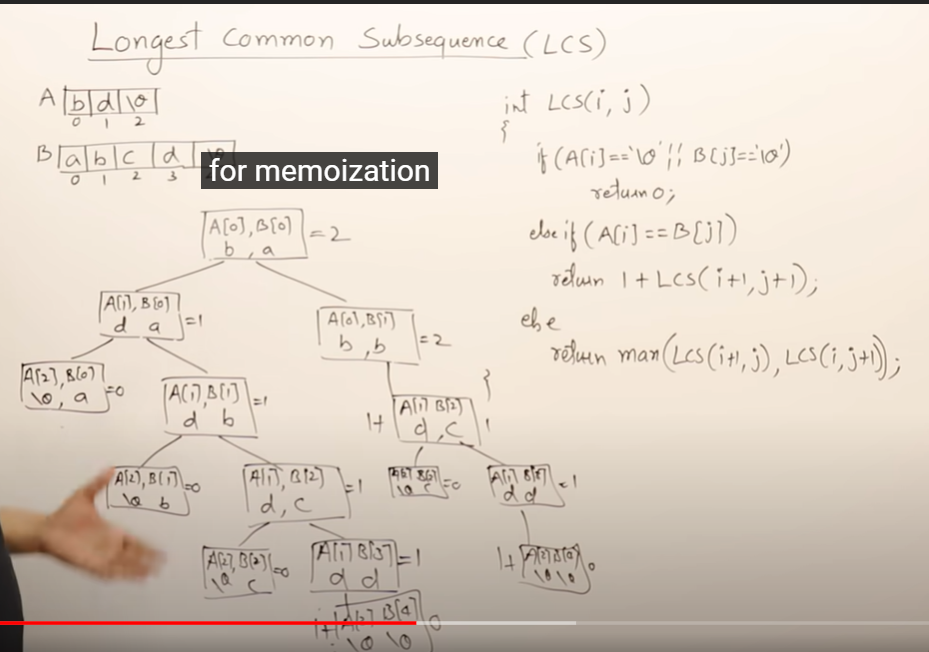 Longest Common Subsequence (LCS)
A b d \0
0 1 2
B a b c d
0 1 2 3
for memoization
A[0], B[0] = 2
b , a
A[1], B[0] = 1
d a
A[0], B[1] = 2
b , b
A[2], B[0] = 0
\0, a
A[1], B[1] = 1
d b
1+ A[1] B[2] 1
d, c
A[2], B[1] = 0
\0 b
A[1], B[2] = 1
d, c
A[2] B[2] = 0
\0 c
A[1] B[3] = 1
d d
A[2], B[2] = 0
\0 c
A[1] B[3] = 1
d d
1+ A[2] B[4] 0
\0 \0
1+ A[2] B[4] 0
\0 \0
int LCS(i, j)
{
if (A[i]=='\0' || B[j]=='\0')
return 0;
else if (A[i] == B[j])
return 1 + LCS(i+1, j+1);
else
return max(LCS(i+1, j), LCS(i, j+1));
}